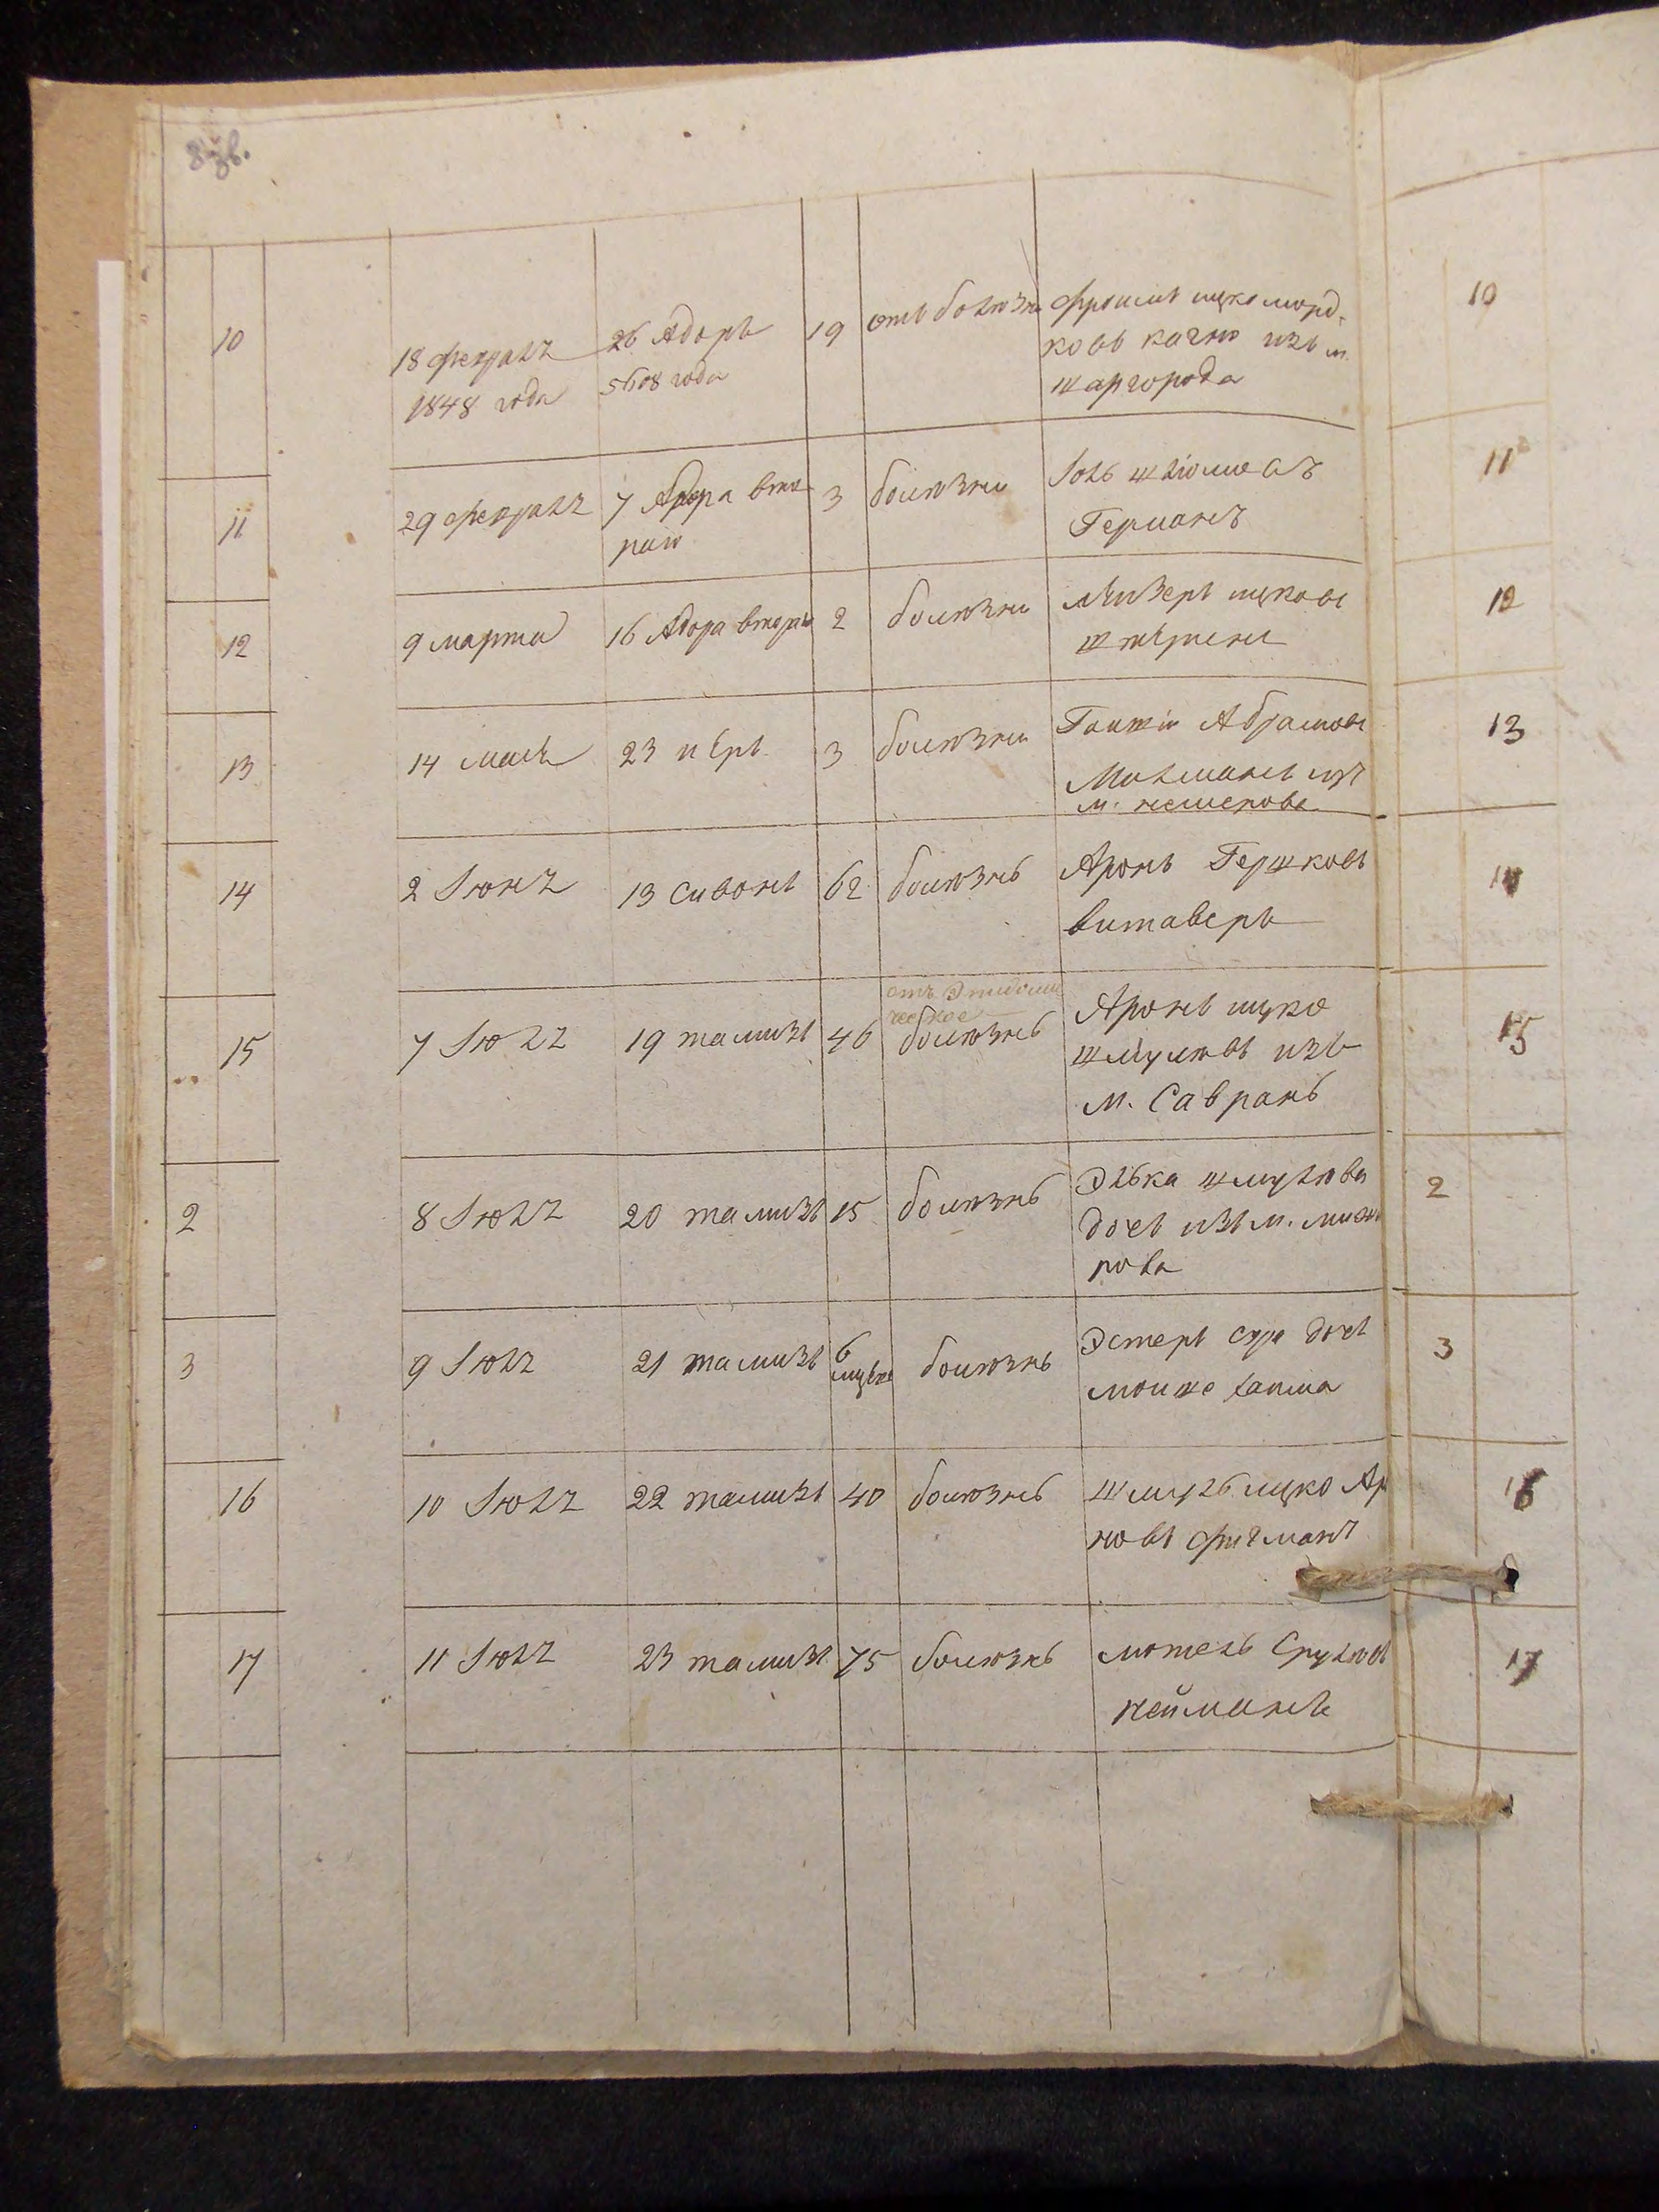 8 зв.
10
18 февраля
1848 года
26 Адаръ
5608 года
19
отъ болѣзни
Фроимъ ицко морд-
ковъ качно изъ м.
шаргорода
10
11
29 февраля
7 Адара вто
раго
3
болѣзни
Германъ
11
12
9 марта
16 Адара втораго
2
болѣзни
Лейзеръ ицковъ
12
13
14 маія
23 иеръ
3
болѣзни
Абрамовъ
м. немерова
13
14
2 Іюня
13 сиванъ
62
болѣзнь
Аронъ Гершковъ
витаверъ
14
15
7 Іюля
19 тамизъ
46
отъ Эпидеми
ческое
болѣзнь
Аронъ ицко
изъ
м. Саврань
15
2
8 Іюля
20 тамизъ
15
болѣзнь
Элька шмулова
дочь изъ м.
рова
2
3
9 Іюля
21 тамизъ
6
болѣзнь
Эстеръ сура дочь
мошке
3
16
10 Іюля
22 тамизъ
40
болѣзнь
шмуль ицко Ар
новъ фигманъ
16
17
11 Іюля
23 тамизъ
75
болѣзнь
мотель Срулювъ
нейманъ
17